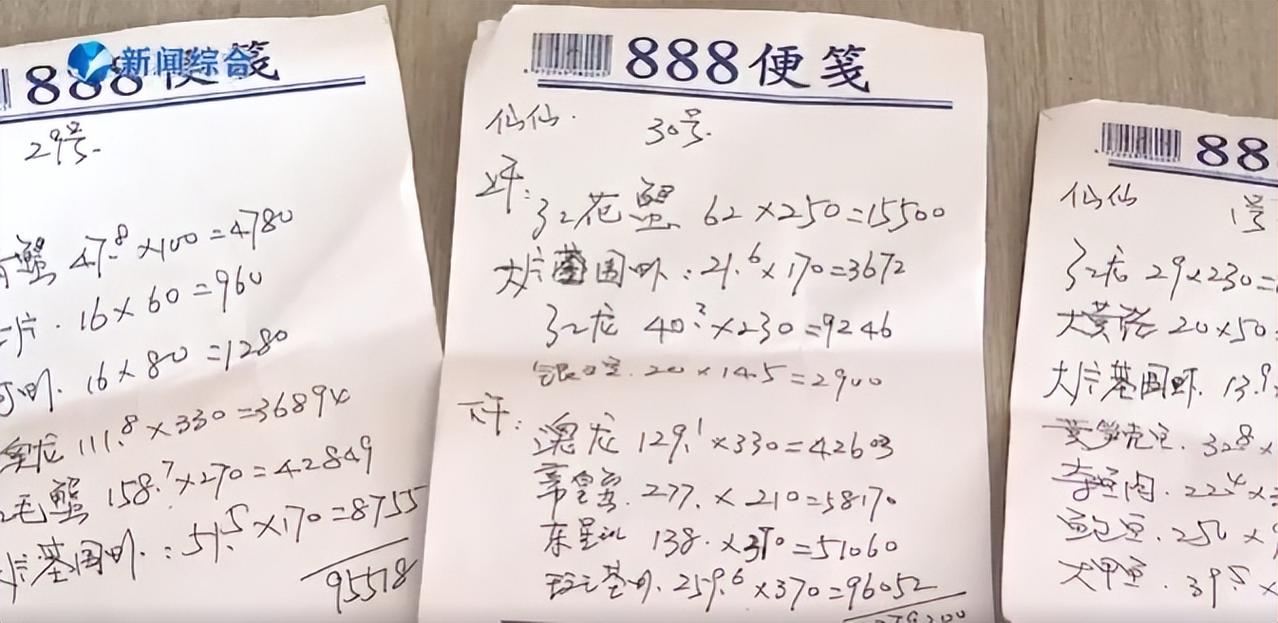 新闻综合
888便笺
29号.
蟹 47.8×100=4780
片. 16×60=960
虾. 16×80=1280
龙 111.8×330=36894
毛蟹 158.7×270=42849
片基围虾.: 51.5×170=8755
95518
888便笺
仙仙.
30号.
上午: 红花蟹 62×250=15500
大片基围虾: 21.6×170=3672
红龙 40.2×230=9246
20×145=2900
下午: 澳龙 129.1×330=42603
帝皇蟹. 277.×210=58170
东星斑 138.×370=51060
基虾. 259.6×370=96052
88
仙仙
1号
红龙 29×230=
大黄花 20×50
大片基围虾. 13.9
32.8×
肉. 22.4×
鲍鱼. 250×
大甲鱼. 39.5×